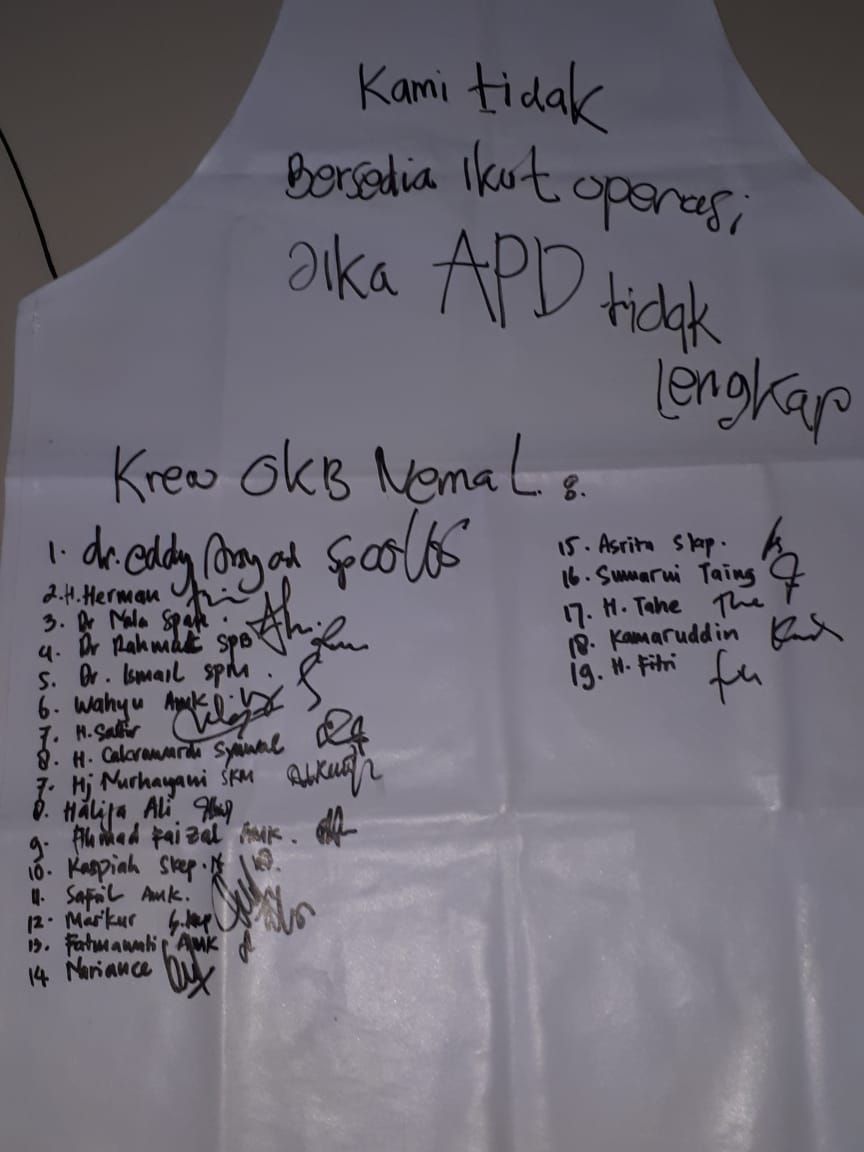 Kami tidak
Bersedia Ikut operasi
Jika APD tidak
lengkap
Krew OKB Nemal :
1. dr. eddy Arsyad
2. H. Herman
3. Dr Nala Span
4. Dr Rahmat SpB
5. Dr. Ismail SPM
6. Wahyu AMK
7. H. Safir
8. H. Cakrawardi Syawal
7. Hj Nurhayani SKM
8. Halija Ali
9. Ahmad Faizal AMK.
10. Kaspiah Skep.N
11. Safril AMK.
12. Markur S.kep
13. Fatmawati AMK
14 Nariance
15. Asrita Skep.
16. Sumarni Taing
17. H. Tahe
18. Kamaruddin
19. H. Fitri